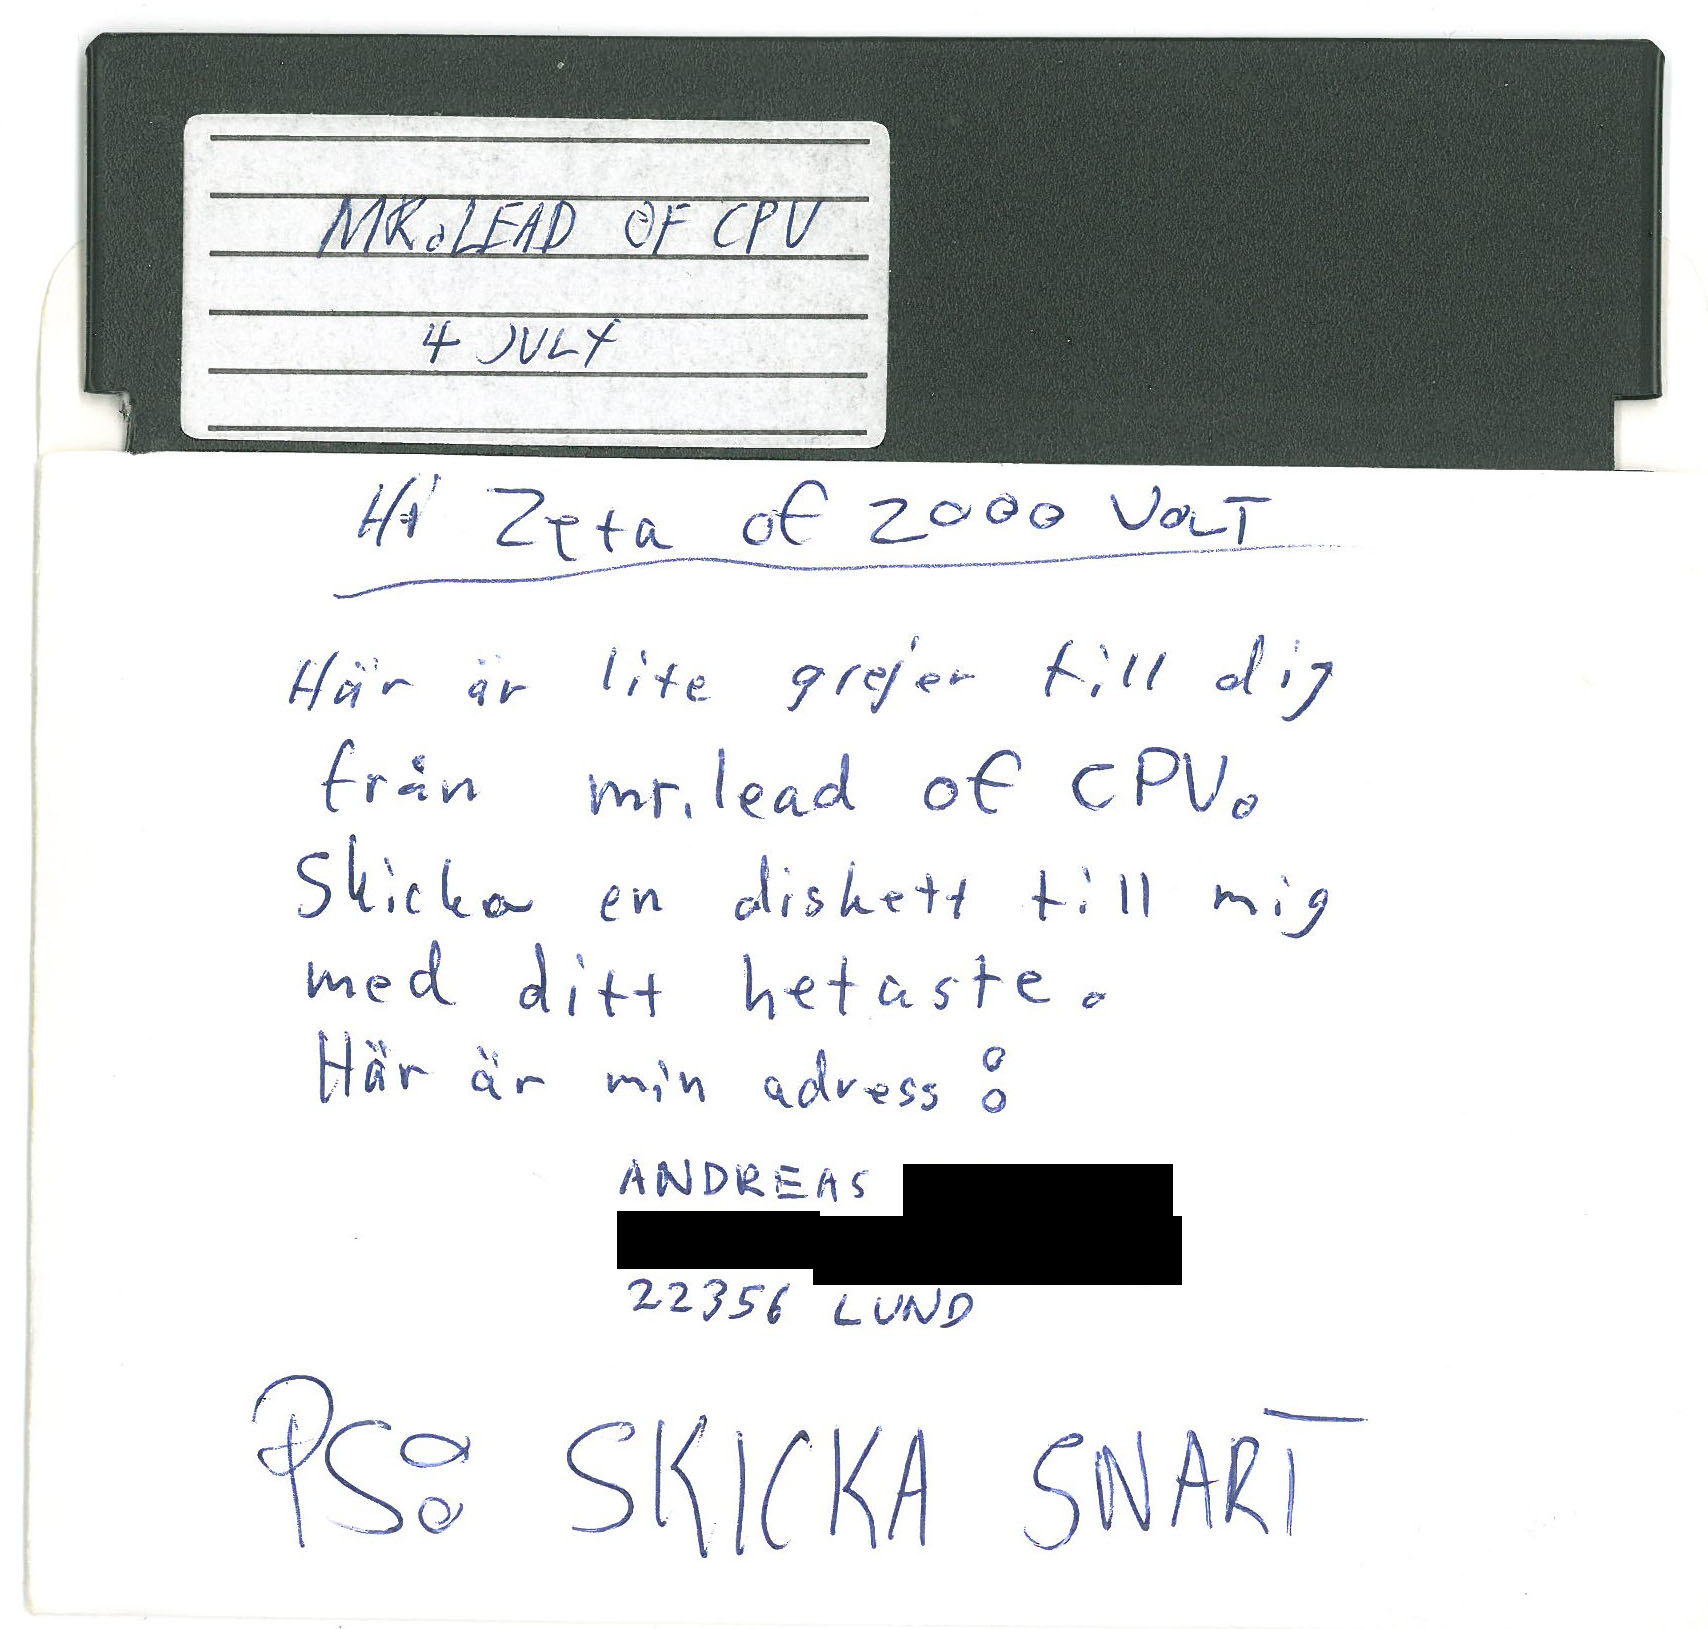 MR.LEAD OF CPV
4 JULY
Hi Zeta of 2000 VOLT
Här är lite grejer till dig
från mr.lead of CPV.
Skicka en diskett till mig
med ditt hetaste.
Här är min adress:
ANDREAS
22356 LUND
PS: SKICKA SNART